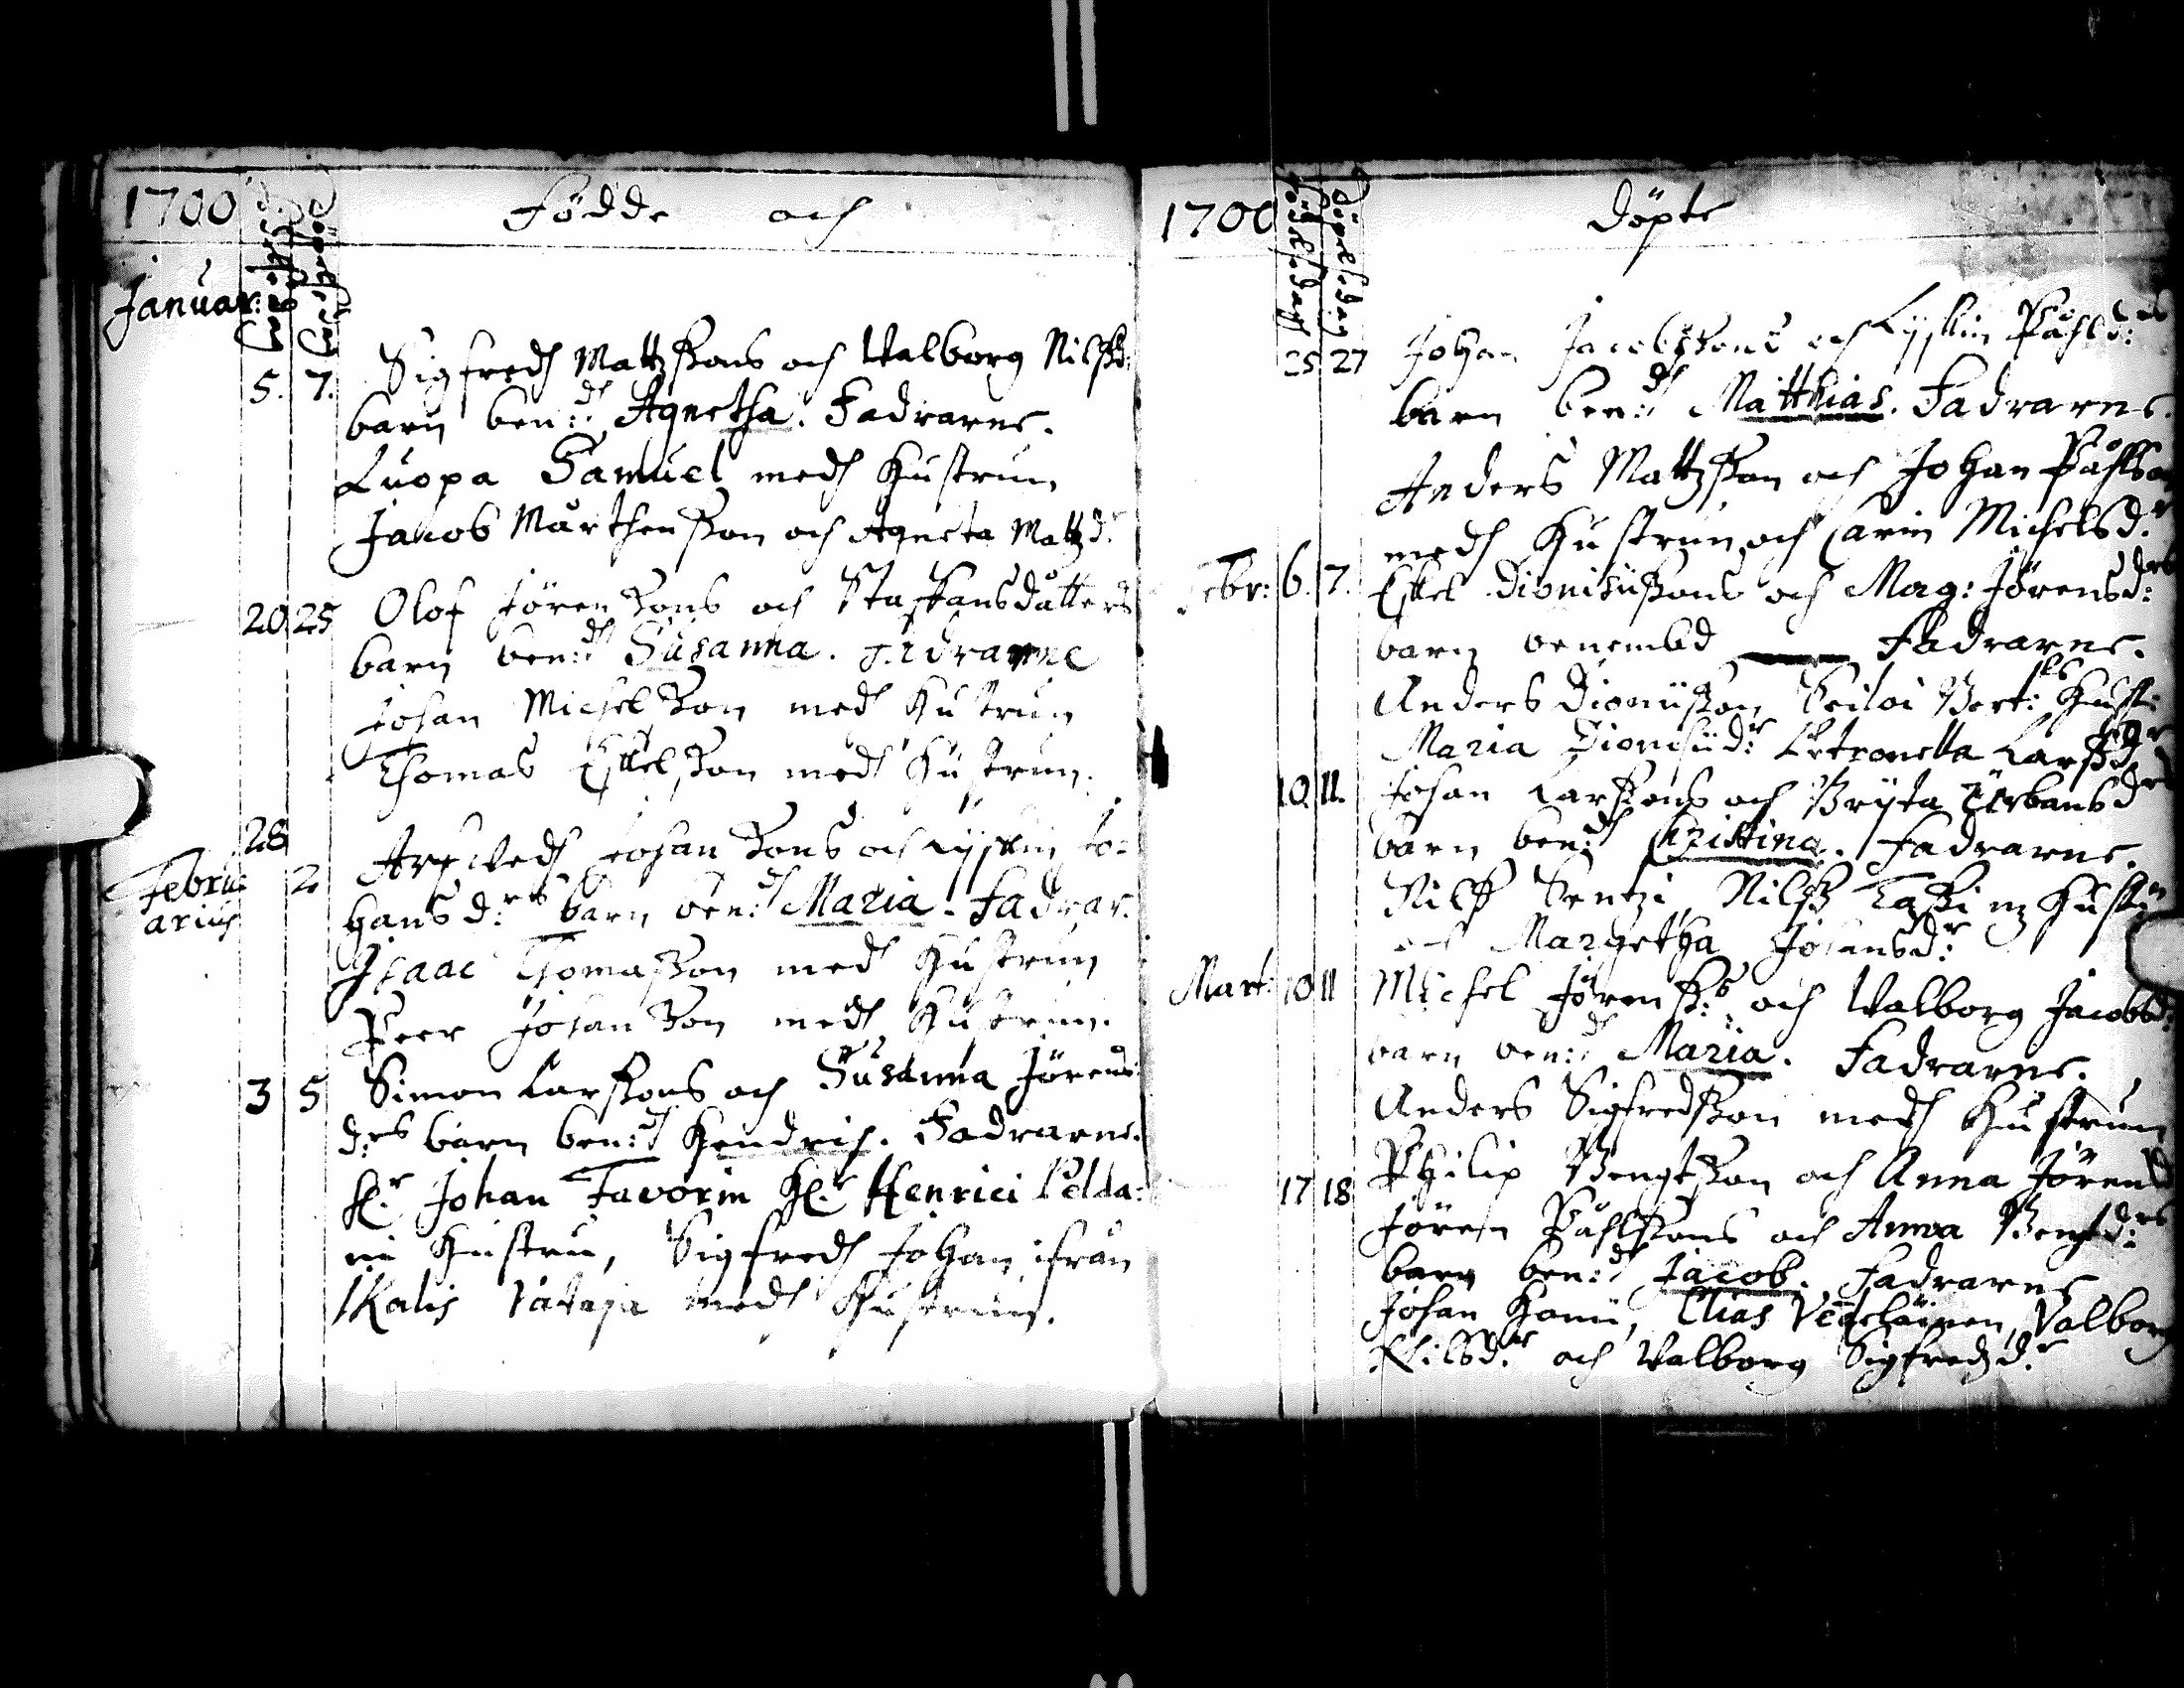 1700
Födde och
Januar:
5. 7. Sigfredh Mattzsons och Walborg Nilsd:
barn ben:dh Agnetha. Fadrarne.
Luopa Samuel medh hustrun
Jacob Mårthensson och Agneta Mattzd:r
20 25 Olof Jörensons och Staffansdåtters
barn ben:dh Susanna. Fadrarne
Johan Michelson medh hustrun
Thomas Eskelsson medh hustrun.
28
Februarius 2 Arfwedh Johansons och Lijskin Jo=
hansd:rs barn ben:dh Maria. Fadrar.
Isaac Thomasson medh hustrun
Peer Johanson medh hustrun.
3 5 Simon Larssons och Susanna Jörens
d:rs barn ben:dh Hendrich. Fadrarne.
H:r Johan Favorin H:r Henrici Pelda=
ni hustru, Sigfredh Johan ifrån
Kalis Pataja medh hustrun.
1700
Döpte
Födelsedagh
Döpelsedag
25 27 Johan Jacobssons och Lijskin Påhlsd:rs
barn ben:dh Matthias. Fadrarne.
Anders Mattzsson och Johan Påhlson
medh hustrun och Carin Michelsd:r
Febr: 6. 7. Eskel Dionisiissons och Mag: Jörensd:rs
barn benembd —— Fadrarne.
Anders Dionisson Bert:ls hust:
Maria Dionisiid:r Petronella Larssd:r
10. 11. Johan Larssons och Brijta Urbansd:rs
barn ben:dh Christina. Fadrarne.
Nilss Sentzi, Nilss Tassi m hustrun
och Margetha Johansd:r
Mart: 10 11 Michel Jörenss:s och Walborg Jacobsd:
barn ben:dh Maria. Fadrarne.
Anders Sigfredsson medh hustrun
Philip Bengtsson och Anna Jörensd
17 18 Jören Påhlssons och Anna Bengtsd:rs
barn ben:dh Jacob. Fadrarne
Johan Homi, Elias Valborg
Nilsd:r och Walborg Sigfredzd:r